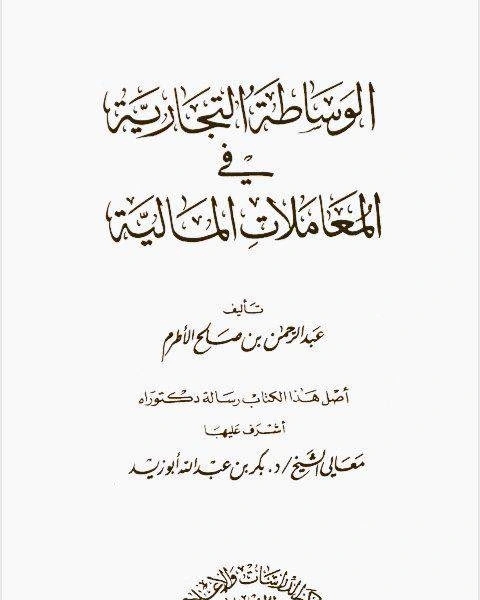 الوَسَاطَة التِّجَاريَّة
في
المُعَامَلَاتِ المَاليَّة
تأليف
عبدالرحمن بن صالح الأطرم
أصل هذا الكتاب رسالة دكتوراه
أشرف عليها
معالي الشيخ / د. بكر بن عبدالله أبوزيد
الدراسات والإعلام